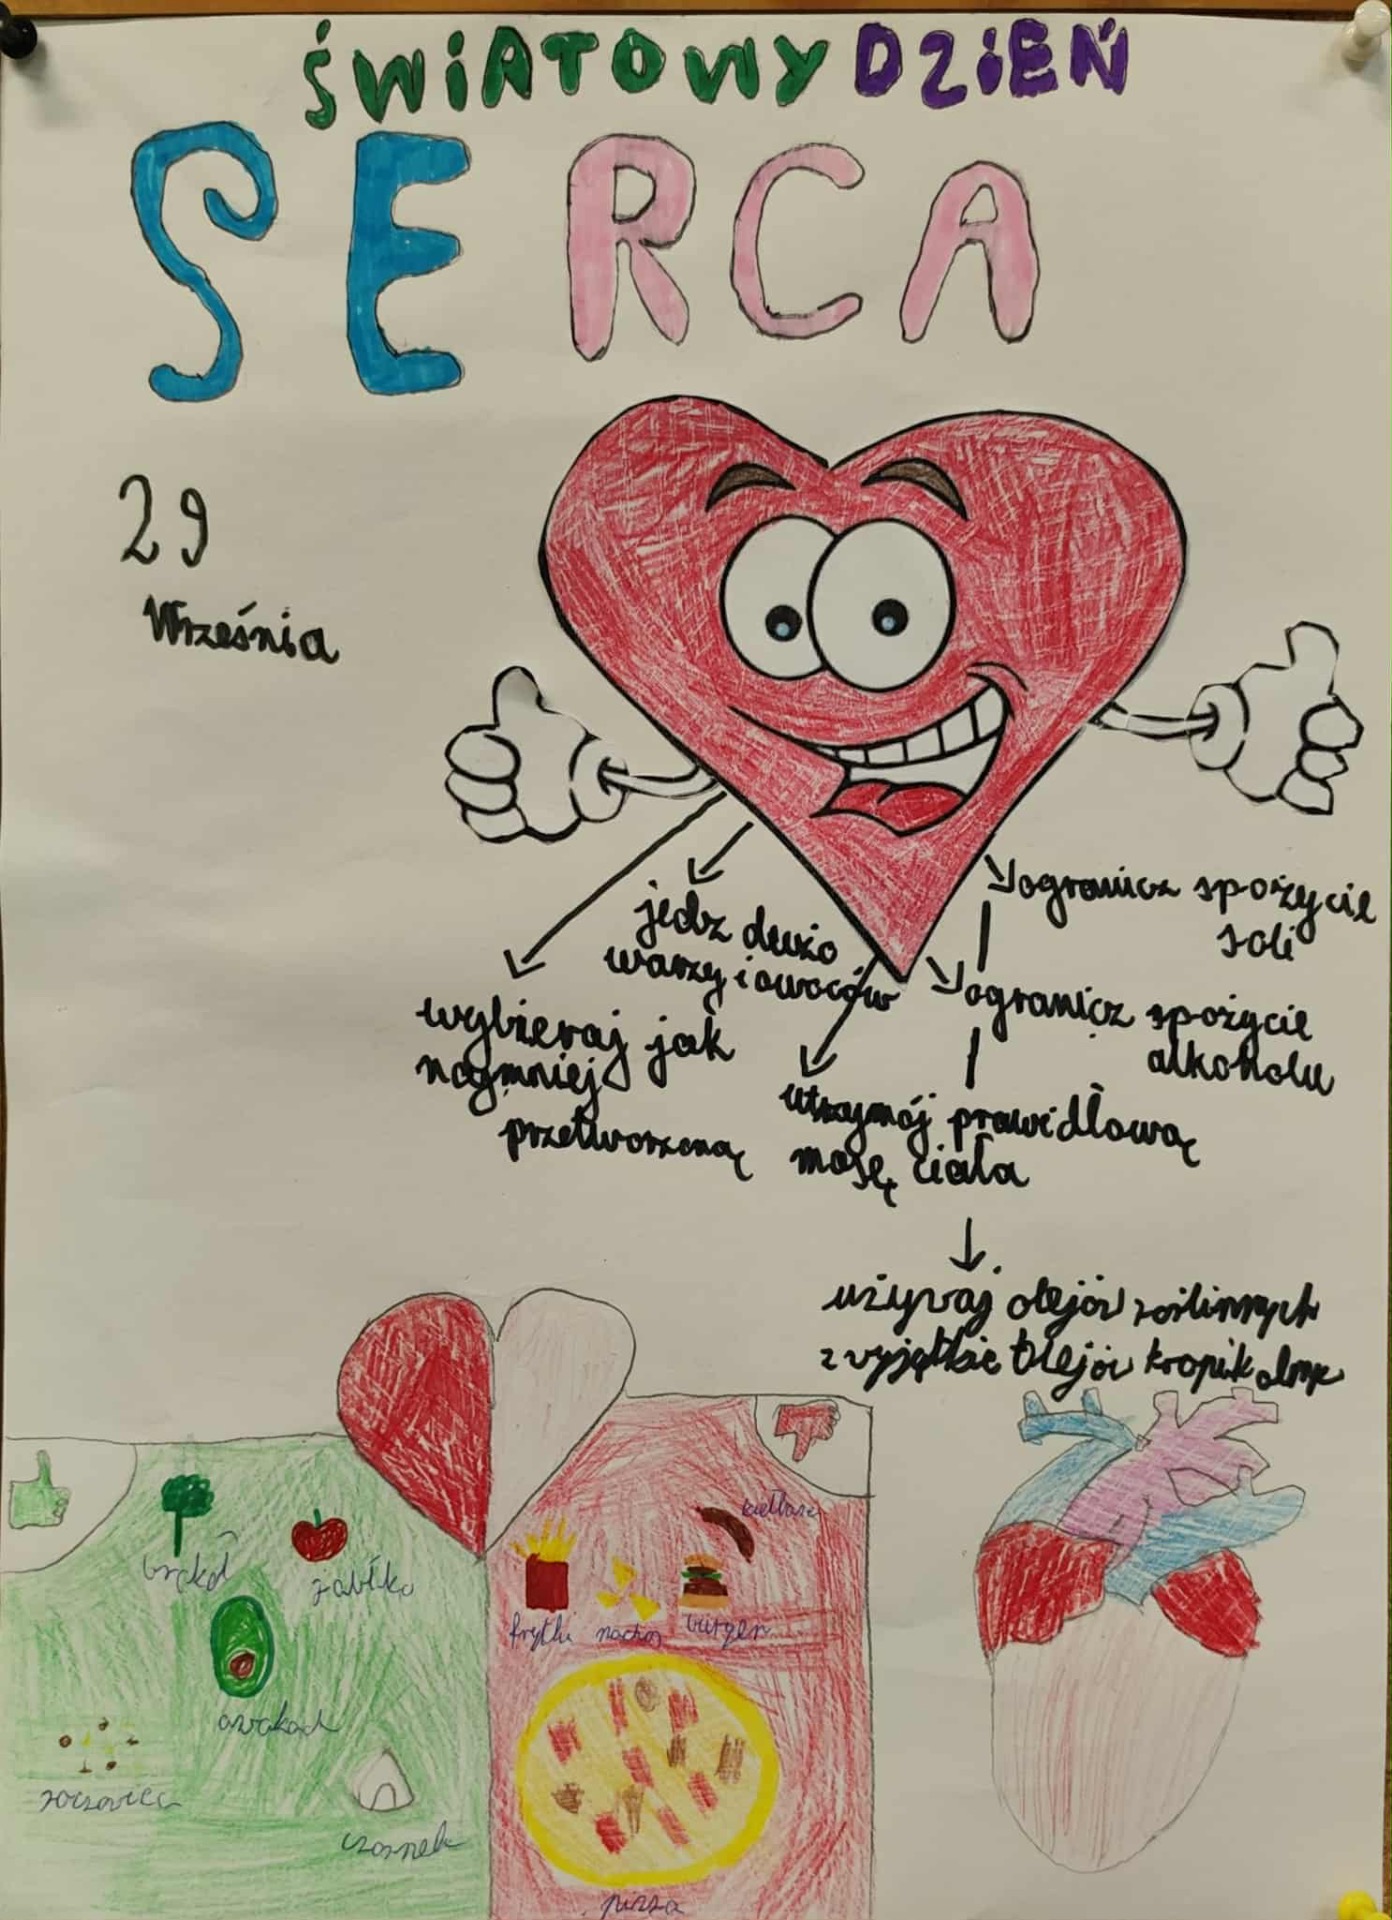 ŚWiATOWY DZiEŃ
SERCA
29
Września
jedz dużo
warzy i owoców
wybieraj jak
najmniej
przetworzoną
ogranicz spożycie
soli
ogranicz spożycie
alkoholu
utrzymój prawidłową
masę ciała
używaj olejów roślinnych
z wyjątkie olejów tropikalnyc
brokół
jabłko
awokad
soczewica
czosnek
kiełbasa
frytki nachos burger
pizza